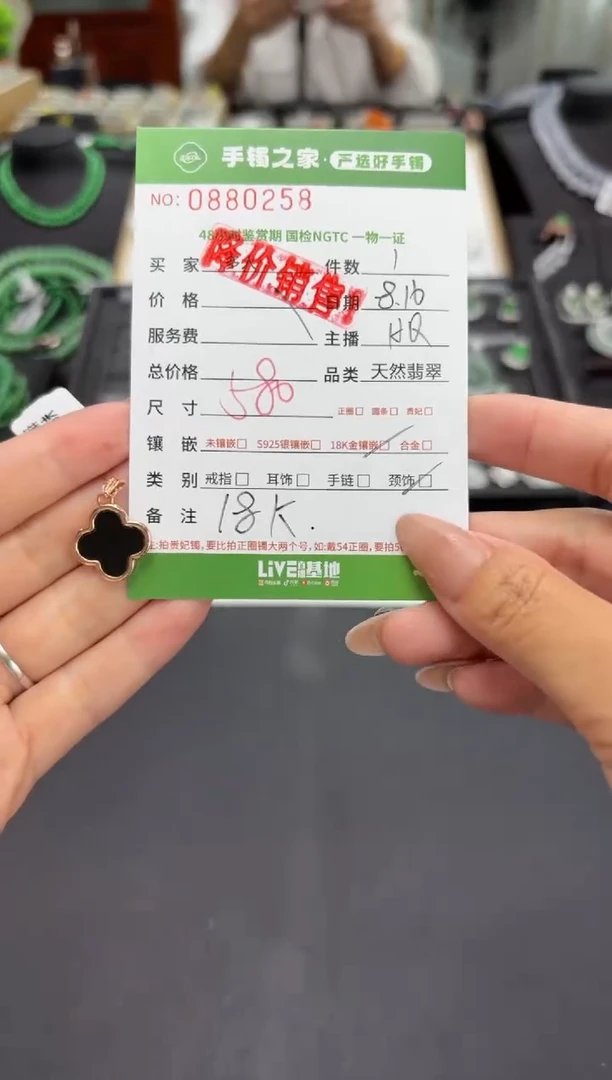 手镯之家·严选好手镯
NO: 0880258
48小时鉴赏期 国检NGTC 一物一证
降价销售!
买 家 件数 1
价 格 日期 8.16
服务费 主播 HQ
总价格 580 品类 天然翡翠
尺 寸 正圈□ 圆条□ 贵妃□
镶 嵌 未镶嵌□ S925银镶嵌□ 18K金镶嵌□ 合金□
类 别 戒指□ 耳饰□ 手链□ 颈饰□
备 注 18K.
:拍贵妃镯,要比拍正圈镯大两个号,如:戴54正圈,要拍5
LIVE基地